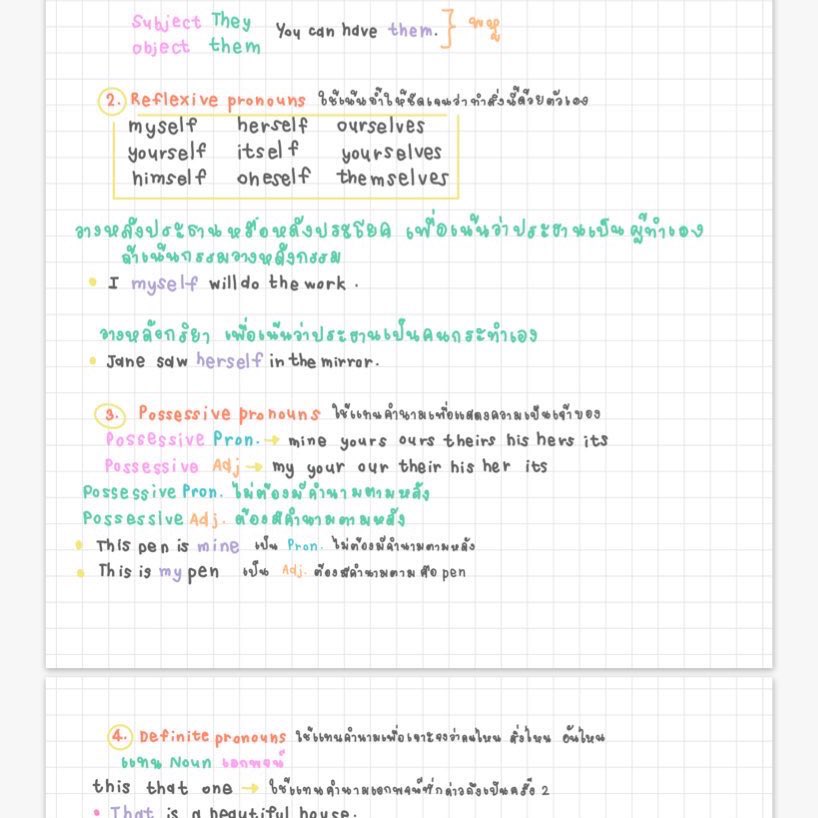 Subject They
object them
You can have them. } พหู
2. Reflexive pronouns ใช้เน้นย้ำให้ชัดเจนว่าทำสิ่งนี้ด้วยตัวเอง
myself herself ourselves
yourself itself yourselves
himself oneself themselves
วางหลังประธาน หรือหลังประโยค เพื่อเน้นว่าประธานเป็น ผู้ทำเอง
ถ้าเน้นกรรมวางหลังกรรม
• I myself will do the work.
วางหลังกริยา เพื่อเน้นว่าประธานเป็นคนกระทำเอง
• Jane saw herself in the mirror.
3. Possessive pronouns ใช้แทนคำนามเพื่อแสดงความเป็นเจ้าของ
Possessive Pron. → mine yours ours theirs his hers its
Possessive Adj → my your our their his her its
Possessive Pron. ไม่ต้องมีคำนามตามหลัง
Possessive Adj. ต้องมีคำนามตามหลัง
• This pen is mine เป็น Pron. ไม่ต้องมีคำนามตามหลัง
• This is my pen เป็น Adj. ต้องมีคำนามตาม คือ pen
4. Definite pronouns ใช้แทนคำนามเพื่อเจาะจงว่าคนไหน สิ่งไหน อันไหน
แทน Noun เอกพจน์
this that one → ใช้แทนคำนามเอกพจน์ที่กล่าวถึงเป็นครั้งที่ 2
• That is a beautiful house.